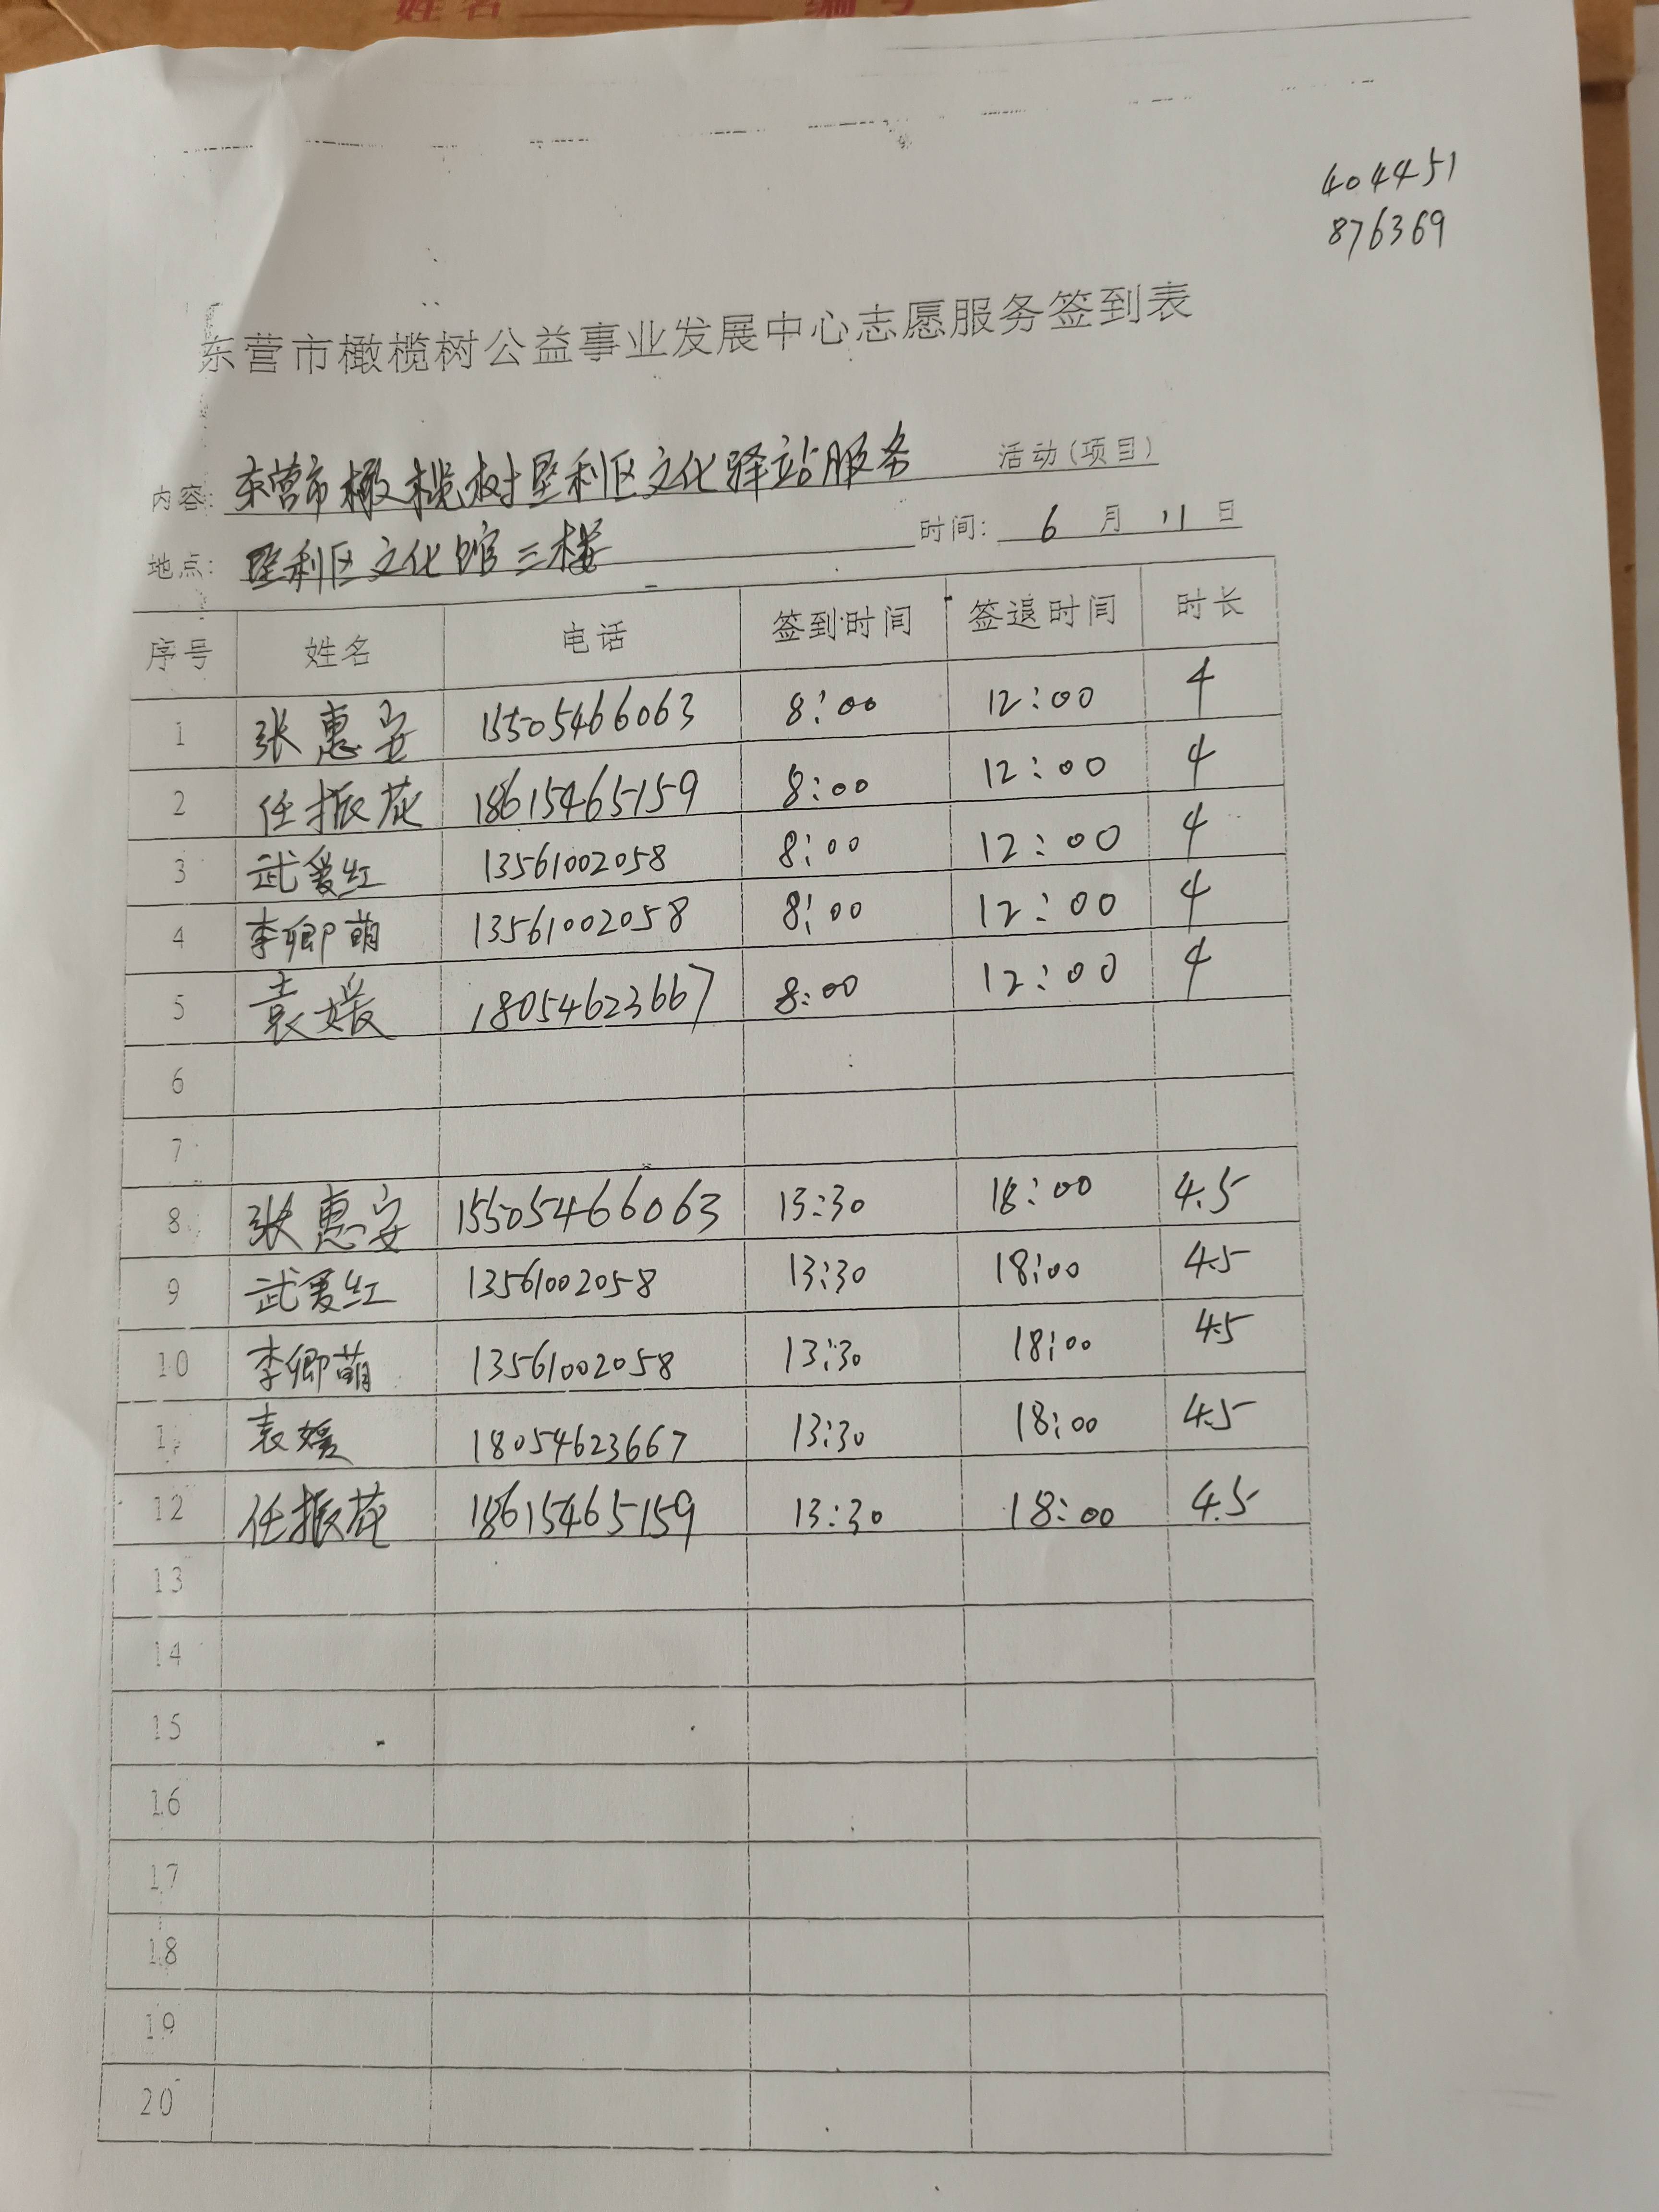 姓名 编号
404451
876369
东营市橄榄树公益事业发展中心志愿服务签到表
内容: 东营市橄榄树垦利区文化驿站服务 活动(项目)
地点: 垦利区文化馆三楼 时间: 6 月 11 日
序号 姓名 电话 签到时间 签退时间 时长
1 张惠安 15505466063 8:00 12:00 4
2 任振花 18615465159 8:00 12:00 4
3 武爱红 13561002058 8:00 12:00 4
4 李卿萌 13561002058 8:00 12:00 4
5 袁媛 18054623667 8:00 12:00 4
6
7
8 张惠安 15505466063 13:30 18:00 4.5
9 武爱红 13561002058 13:30 18:00 4.5
10 李卿萌 13561002058 13:30 18:00 4.5
11 袁媛 18054623667 13:30 18:00 4.5
12 任振花 18615465159 13:30 18:00 4.5
13
14
15
16
17
18
19
20